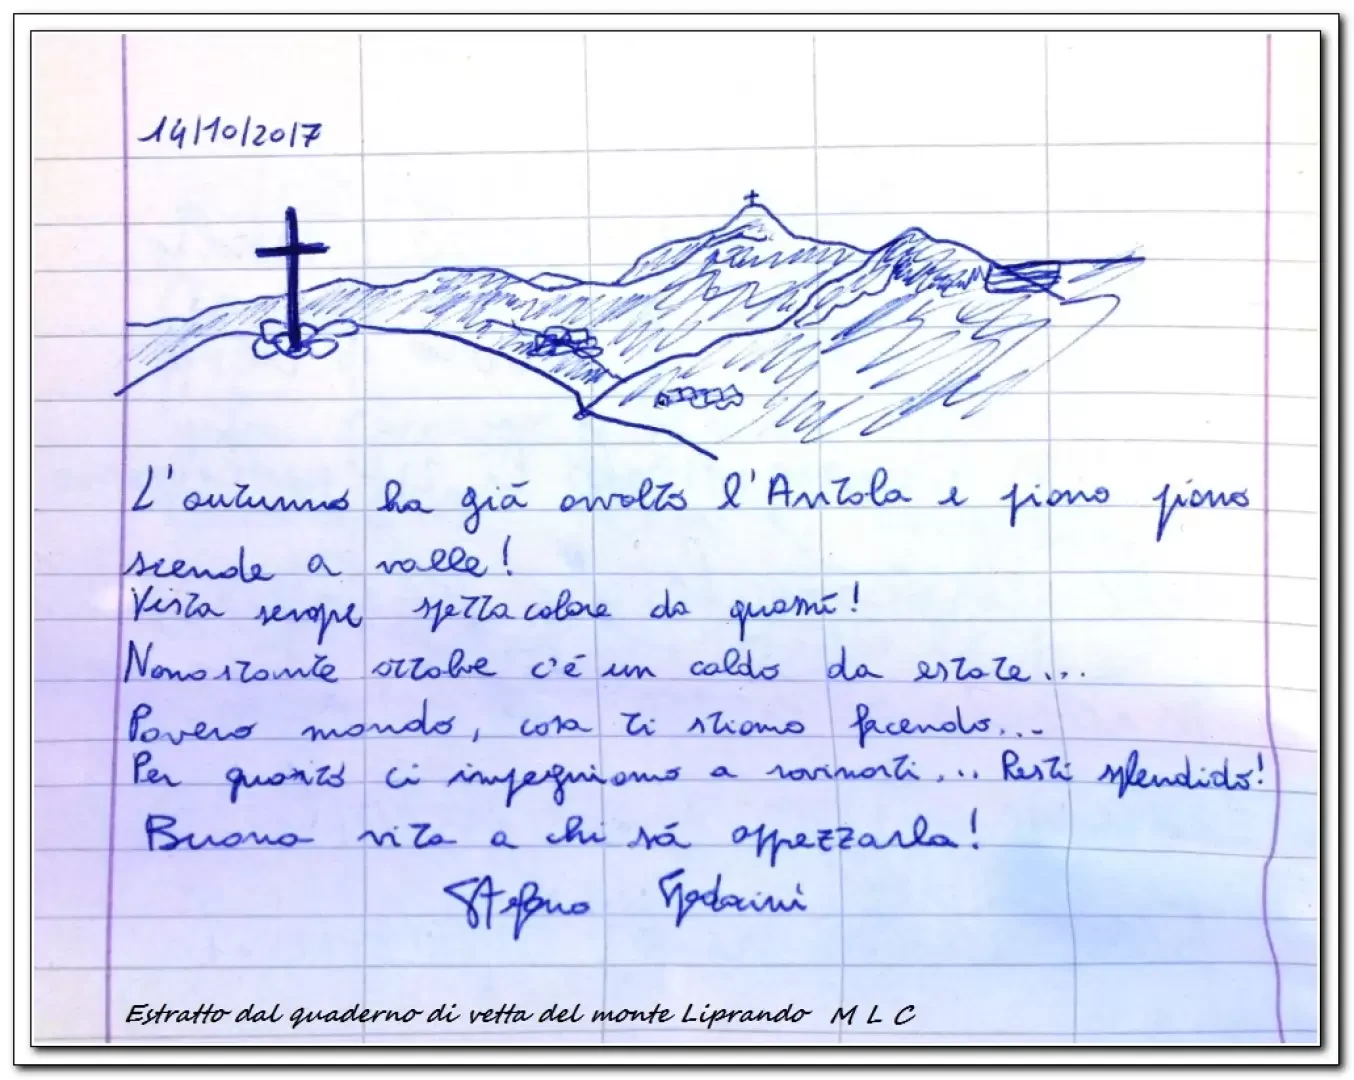 14/10/2017
L'autunno ha già avvolto l'Antola e piano piano
scende a valle!
Vista sempre spettacolare da quassù!
Nonostante ottobre c'è un caldo da estate...
Povero mondo, cosa ti stiamo facendo...
Per quanto ci impegniamo a rovinarti... Resti splendido!
Buona vita a chi sà appezzarla!
Stefano
Estratto dal quaderno di vetta del monte Liprando M L C